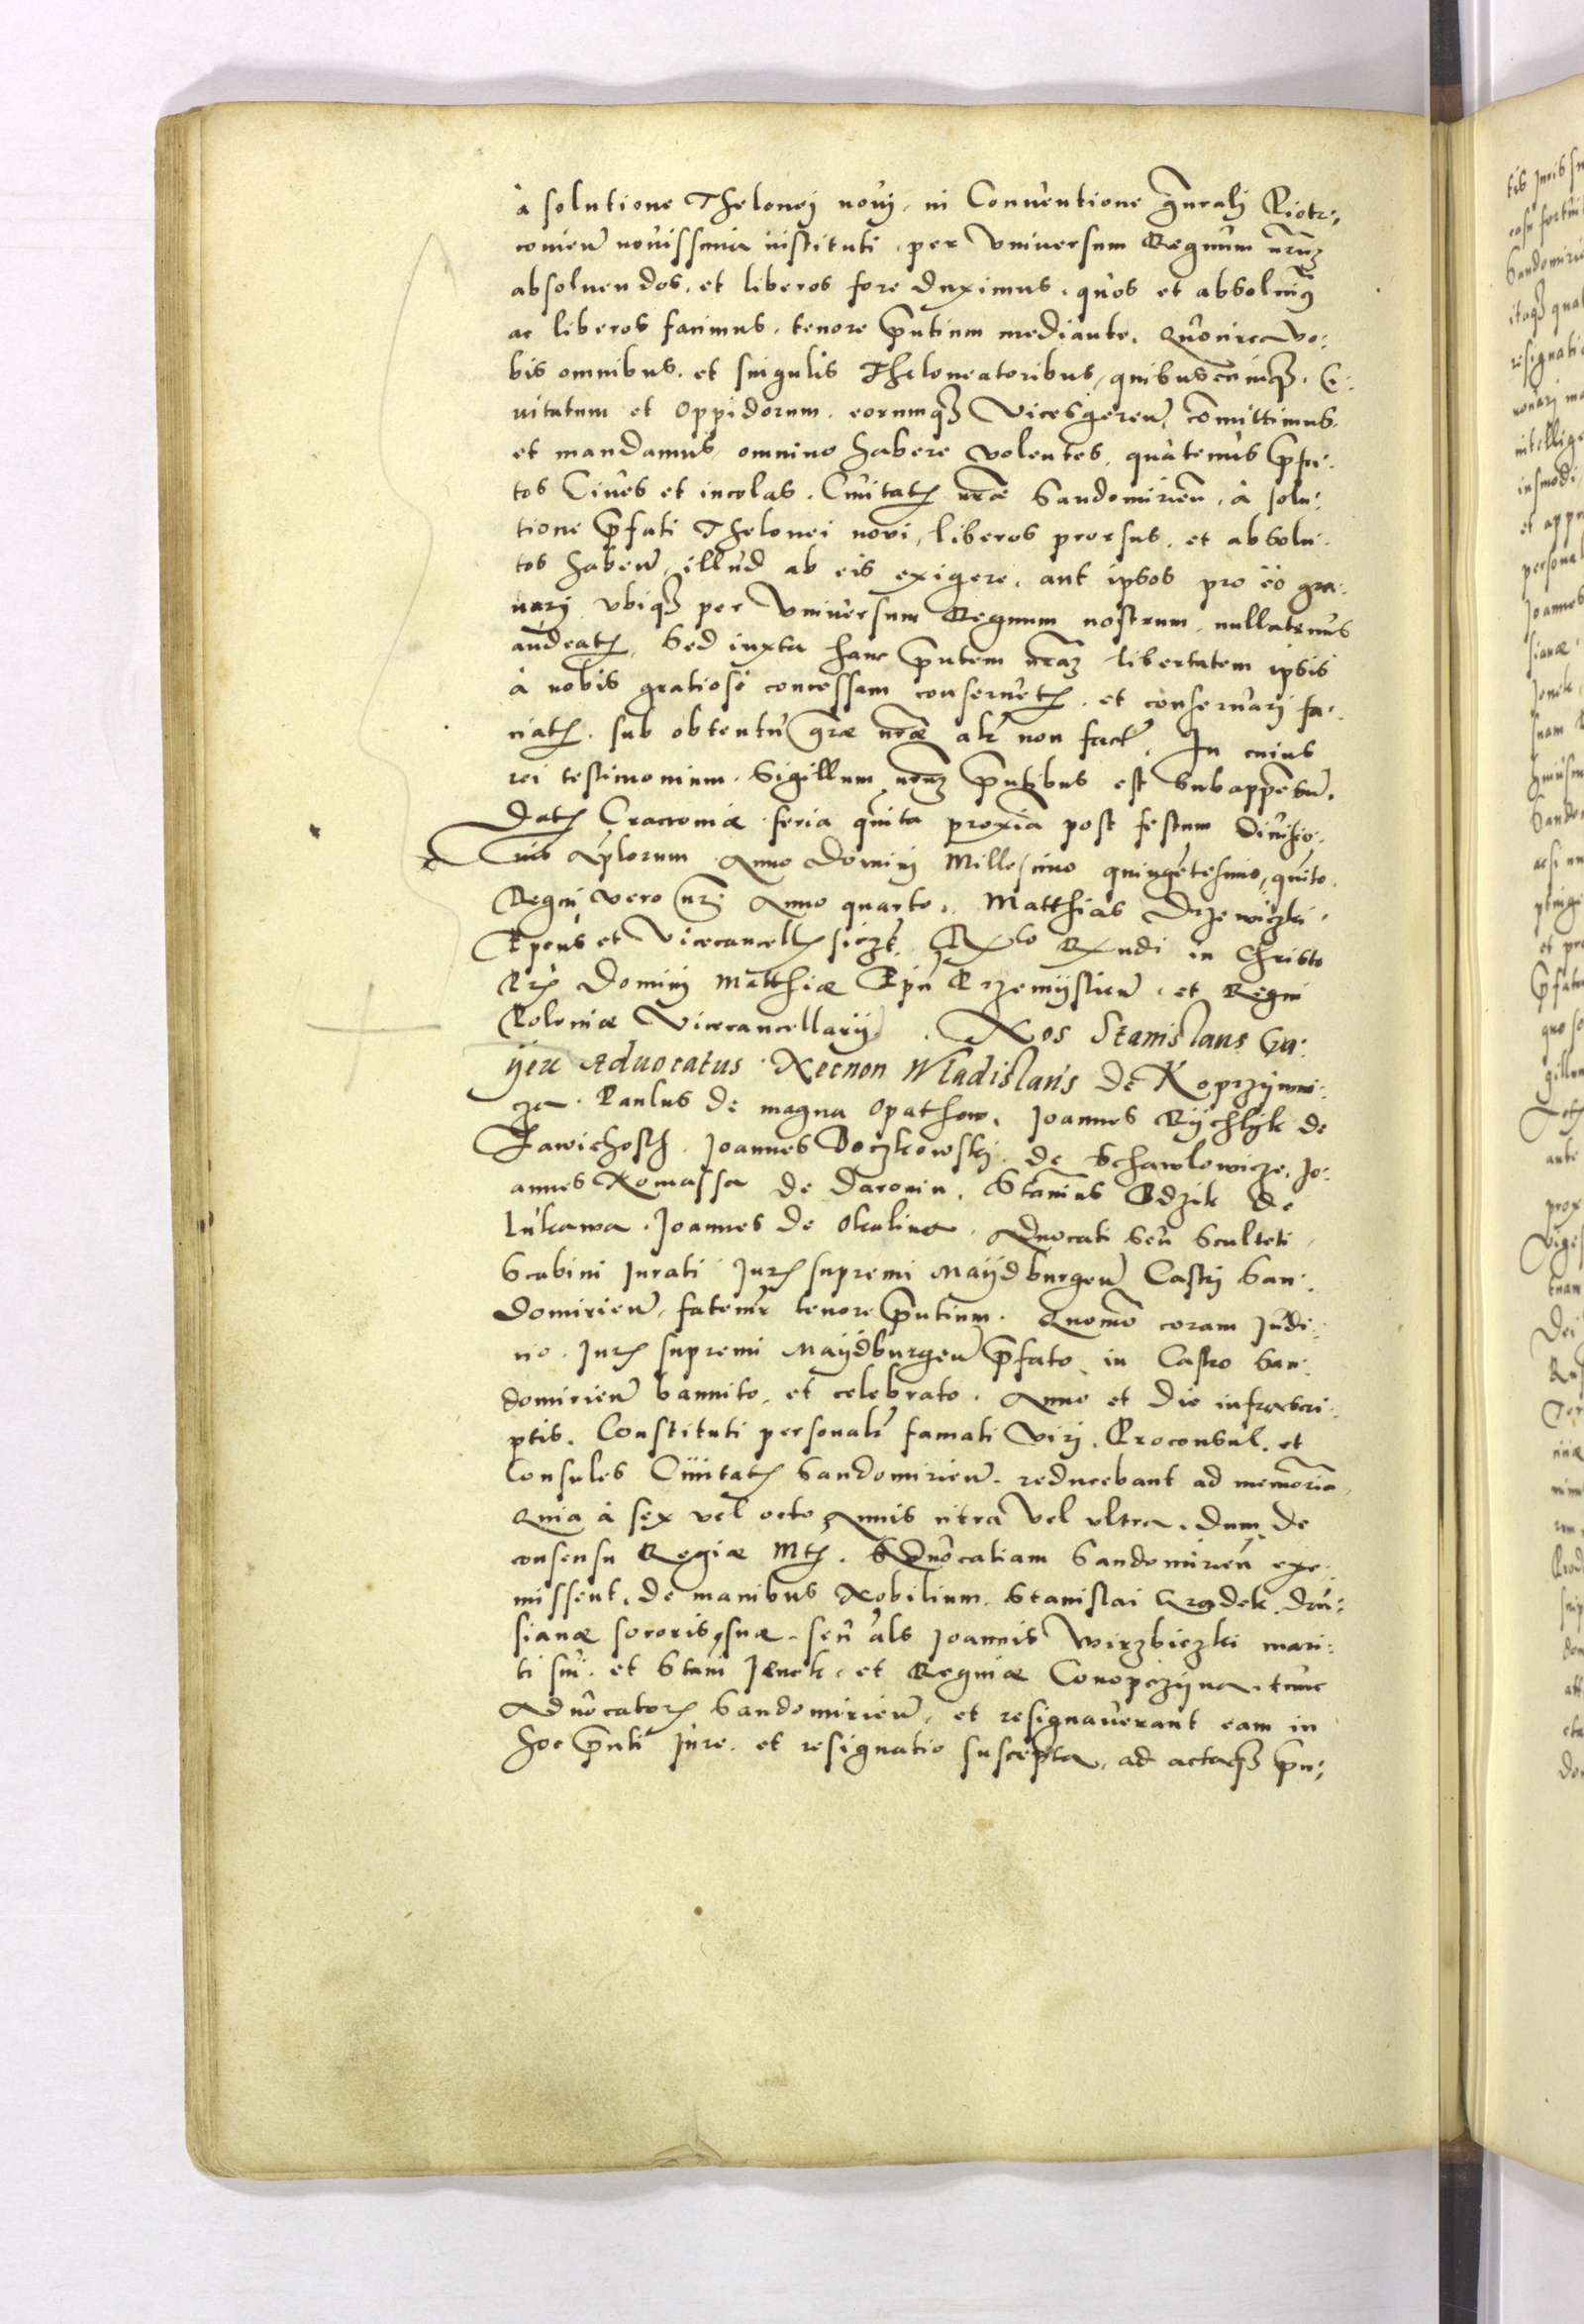 à solutione Thelonej novj, in Conventione gn̄ralj Piotr,
covien̄ novissima instituti, per Vniversum Regnum nr̄uȝ
absoluendos, et liberos fore duximus, quos et absoluimꝰ
ac liberos facimus, tenore p̄ntium mediante, Quocirca vo:
bis omnibus, et singulis Theloneatoribus, quibuscūmqꝫ, Ci:
vitatum et Oppidorum, eorumqꝫ Vicesgeren̄, cōmittimus,
et mandamus omnino habere volentes, quatenus p̄fa:
tos Cives et incolas, Civitatꝭ nr̄æ Sandomirien̄, à solu:
tione p̄fati Thelonei novi, liberos prorsus, et absolu:
tos haben̄, illud ab eis exigere, aut ipsos pro eo gra:
varj vbiqꝫ per Vniversum Regnum nostrum, nullatenus
audeatꝭ, Sed iuxta hanc p̄ntem nr̄aȝ libertatem ipsis
à nobis gratiose concessam conservetꝭ, et conservarj fa:
ciatꝭ, sub obtentu gr̄æ nr̄æ alr̄ non factur̄, In cuius
rei testimonium, Sigillum nr̄uȝ p̄ntibus est subappensū.
Datꝭ Cracoviæ feria quinta proxīa post festum Divisio:
nis Aplorum Anno Dominj Millesimo quingētesimo, quīto
Regni vero nr̄i Anno quarto, Matthias Drzewiczki,
Epcus et Vicecancellꝭ siczt̄. Rx̄lo Rx̄ndi in Christo
Pr̄ꝭ Dominj Matthiæ Epīi Przemijslien̄, et Regni
Poloniæ Vicecancellarij. Nos Stanislaus Ga:
ijek Advocatus Necnon Wladislaus De Koprzijwni:
cza, Paulus de magna Opathow, Joannes Rijchlijk de
Zawichosth, Joannes Boczkowskj de Schawlowicze, Jo:
annes Komassa de Daronin, Stanius Bdzik de
Lukawa, Joannes de Okalina, Advocati seu Sculteti,
Scabini Jurati Jurꝭ supremi Maijdburgen̄ Castrj San:
domirien̄, fatemur tenore p̄ntium, Quomō coram Judi:
cio Jurꝭ supremi Maijdburgen̄ p̄fato, in Castro San:
domirien̄ bannito, et celebrato, Anno et Die infrascri:
ptis, Constituti personalr̄ famati Virj, Proconsul, et
Consules Civitatꝭ Sandomirien̄, reducebant ad memoriā
Quia à sex vel octo Annis citra vel ultra, dum de
consensu Regiæ Mtꝭ, Advocatiam Sandomirien̄ exe:
missent, de manibus Nobilium, Stanislai Gradek, Dru:
sianæ sororis suæ, seu als Joannis Wirzbiczki mari:
ti sui, et Stani Jenek, et Reginæ Conopczijna, tunc
Advocatorꝭ Sandomirien̄, et resignaverant eam in
hoc p̄nti Jure, et resignatio suscepta, ad actaqꝫ p̄n: